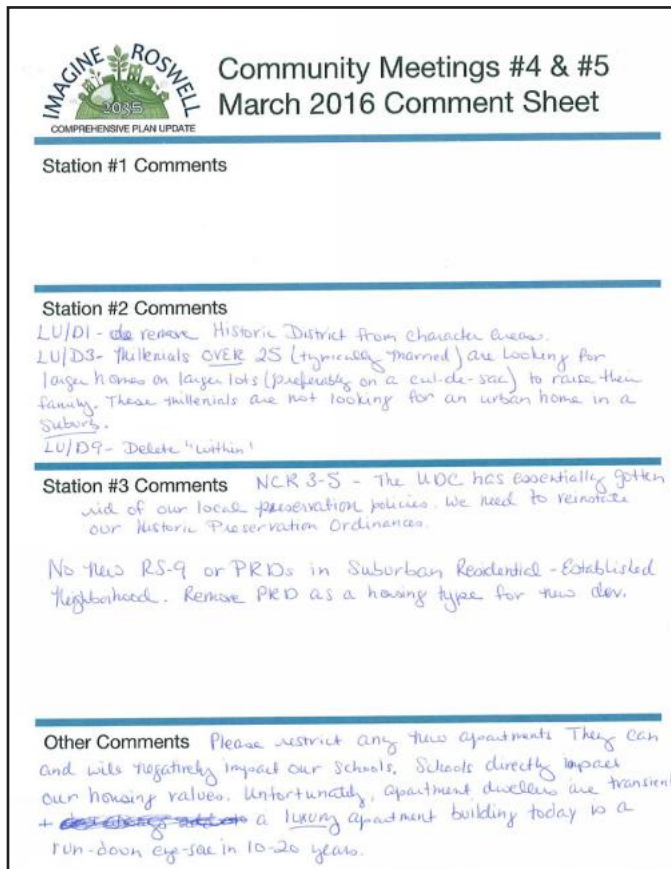 IMAGINE ROSWELL
2035
COMPREHENSIVE PLAN UPDATE
Community Meetings #4 & #5
March 2016 Comment Sheet
Station #1 Comments
Station #2 Comments
LU/D1 - remove Historic District from character areas.
LU/D3 - Millenials OVER 25 (typically married) are looking for
larger homes on larger lots (preferably on a cul-de-sac) to raise their
family. These millenials are not looking for an urban home in a
suburb.
LU/D9 - Delete "within"
Station #3 Comments NCR 3-5 - The UDC has essentially gotten
rid of our local preservation policies. We need to reinstate
our Historic Preservation Ordinances.
No new RS-9 or PRDs in Suburban Residential - Established
Neighborhood. Remove PRD as a housing type for new dev.
Other Comments Please restrict any new apartments They can
and will negatively impact our schools. Schools directly impact
our housing values. Unfortunately, apartment dwellers are transient
+ a luxury apartment building today is a
run-down eye-sore in 10-20 years.